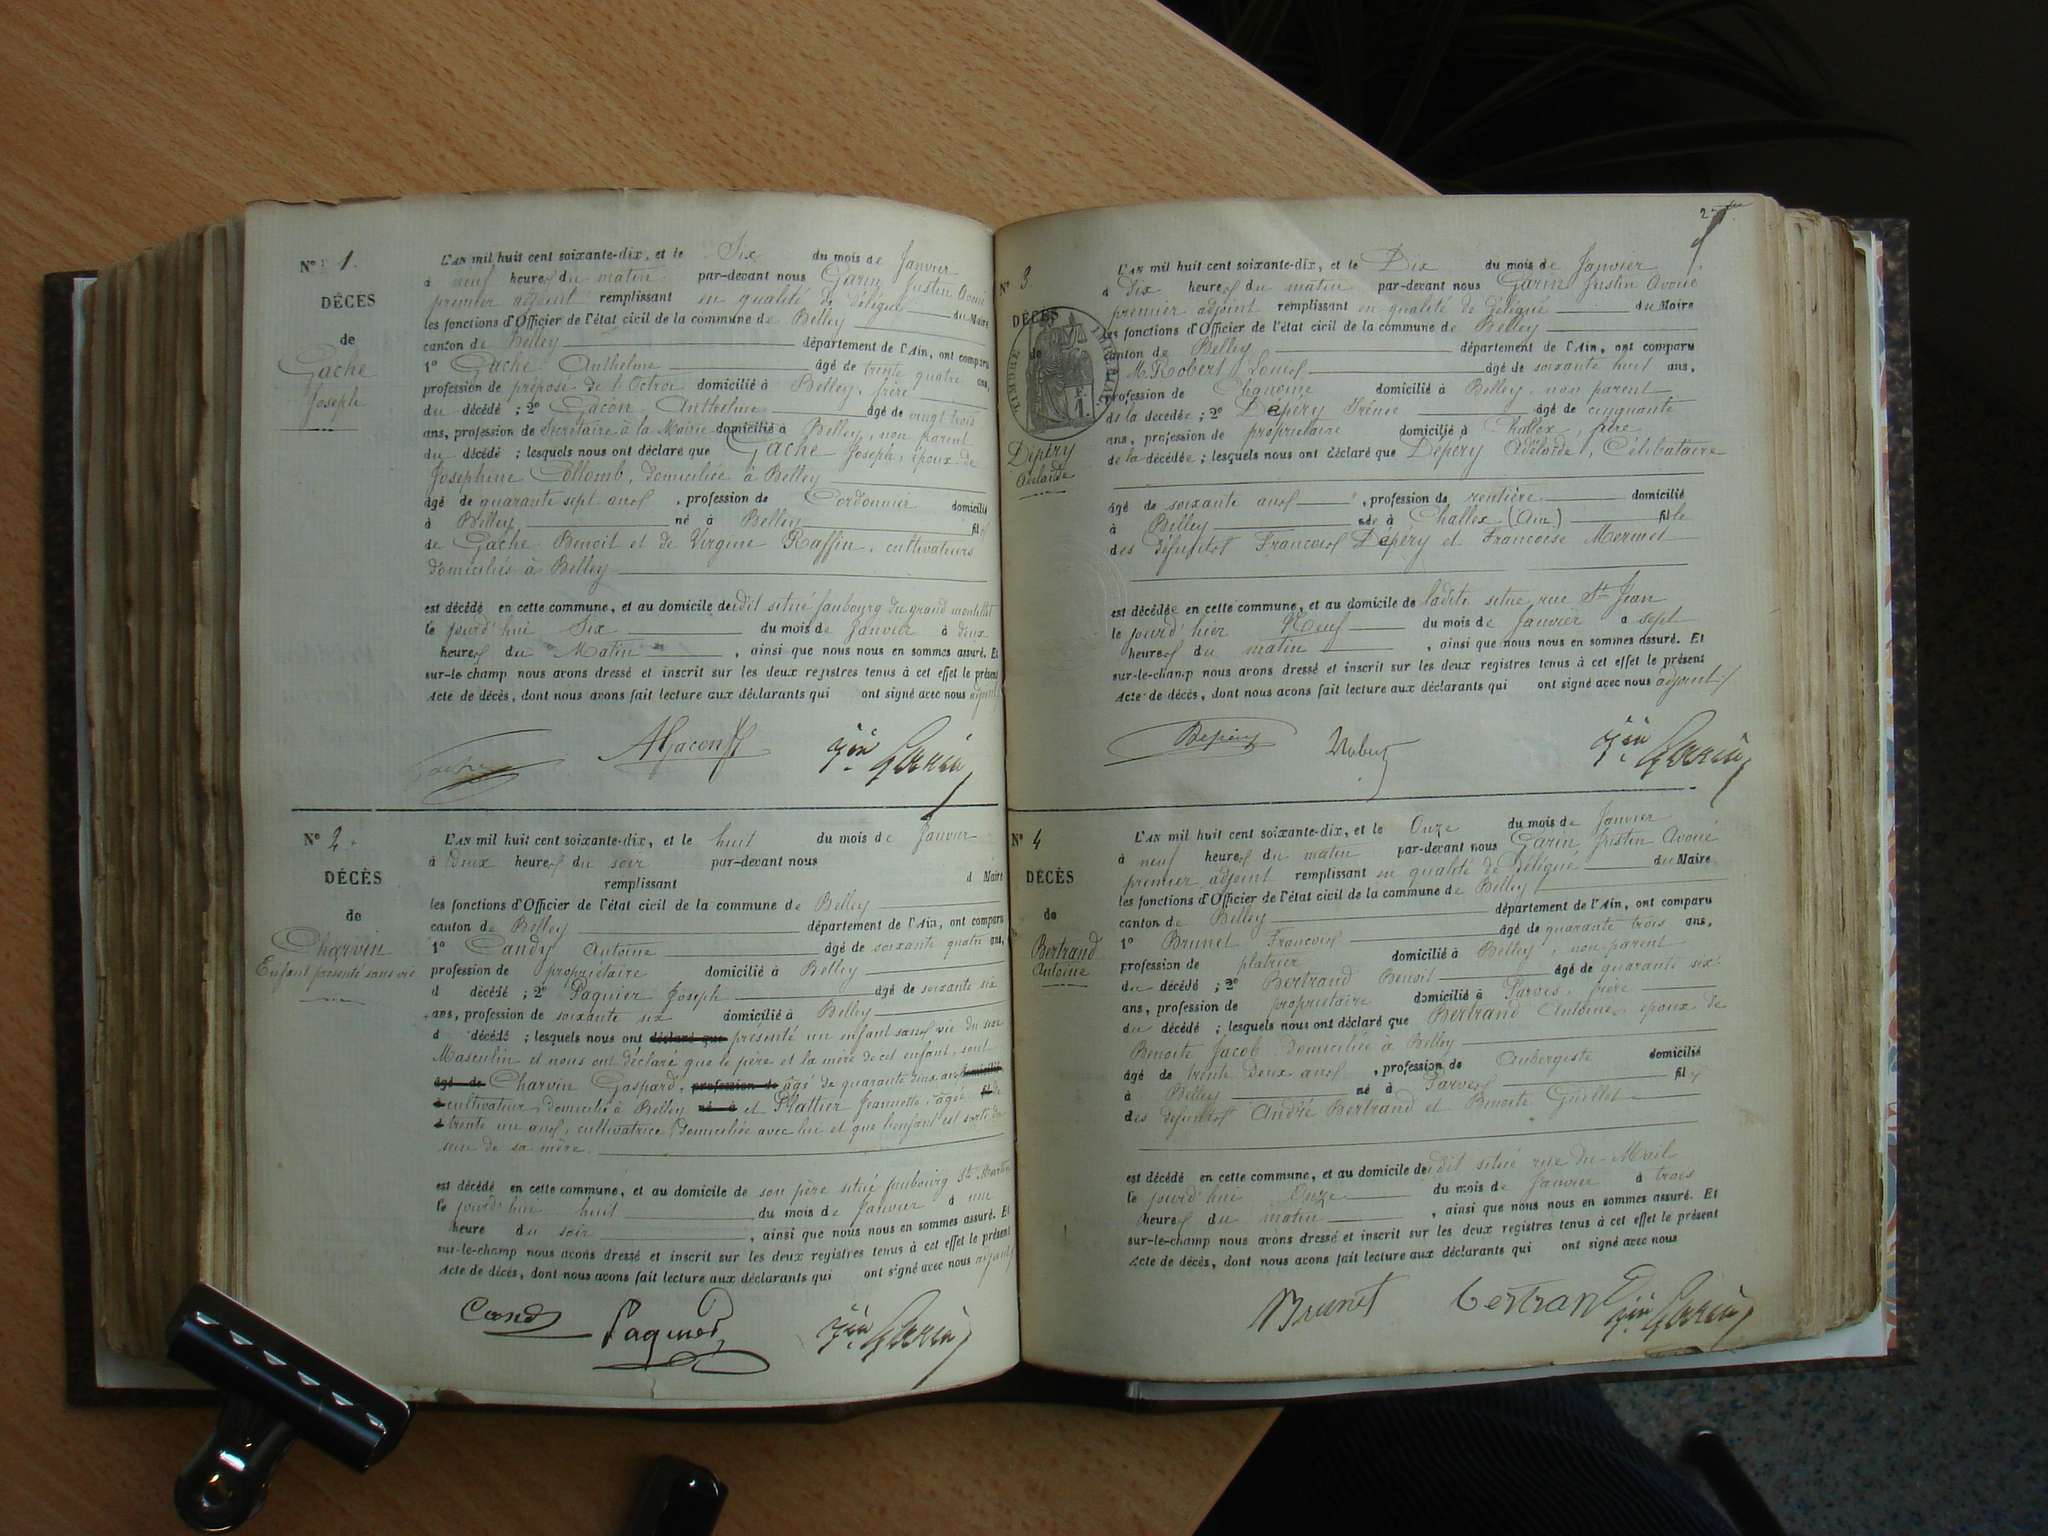 N° 1.
DÉCÈS
de
Gache
Joseph
L'AN mil huit cent soixante-dix, et le Six du mois de Janvier
à neuf heures du matin par-devant nous Garin Justin Avoué
premier adjoint remplissant en qualité de Délégué du Maire
les fonctions d'Officier de l'état civil de la commune de Belley
canton de Belley département de l'Ain, ont comparu
1° Gache Anthelme âgé de trente quatre ans,
profession de préposé de l'Octroi domicilié à Belley, frère
du décédé ; 2° Gacon Anthelme âgé de vingt trois
ans, profession de Secrétaire à la Mairie domicilié à Belley, non parent
du décédé ; lesquels nous ont déclaré que Gache Joseph, époux de
Josephine Collomb, domiciliée à Belley
âgé de quarante sept ans, profession de Cordonnier domicilié
à Belley né à Belley fils
de Gache Benoit et de Virginie Raffin, cultivateurs
domiciliés à Belley
est décédé en cette commune, et au domicile dudit situé faubourg du grand
le jourd'hui Six du mois de Janvier à deux
heures du Matin, ainsi que nous nous en sommes assuré. Et
sur-le-champ nous avons dressé et inscrit sur les deux registres tenus à cet effet le présent
Acte de décès, dont nous avons fait lecture aux déclarants qui ont signé avec nous adjoint
Gache AGacon Jin Garin
N° 2.
DÉCÈS
de
Charvin
Enfant présenté sans vie
L'AN mil huit cent soixante-dix, et le huit du mois de Janvier
à Deux heures du soir par-devant nous
remplissant d Maire
les fonctions d'Officier de l'état civil de la commune de Belley
canton de Belley département de l'Ain, ont comparu
1° Candy Antoine âgé de soixante quatre ans,
profession de propriétaire domicilié à Belley
d décédé ; 2° Paquier Joseph âgé de soixante six
ans, profession de soixante six domicilié à Belley
d décédé ; lesquels nous ont déclaré que présenté un enfant sans vie du sexe
Masculin et nous ont déclaré que le père et la mère de cet enfant, sont
âgé de Charvin Gaspard, profession de âgé de quarante deux ans domicilié
à cultivateur, domicilié à Belley né à et Plattier Jeannette, âgée fil de
d trente un ans, cultivatrice, Domiciliée avec lui et que l'enfant est sorti du
sein de sa mère.
est décédé en cette commune, et au domicile de son père situé faubourg St Martin
le jourd'hui huit du mois de Janvier à une
heure du soir, ainsi que nous nous en sommes assuré. Et
sur-le-champ nous avons dressé et inscrit sur les deux registres tenus à cet effet le présent
Acte de décès, dont nous avons fait lecture aux déclarants qui ont signé avec nous adjoint
Candy Paquier Jin Garin
2
N° 3
DÉCÈS
de
TIMBRE IMPÉRIAL
1 F.
Dépéry
Adélaïde
L'AN mil huit cent soixante-dix, et le Dix du mois de Janvier
à Dix heures du matin par-devant nous Garin Justin Avoué
premier adjoint remplissant en qualité de Délégué du Maire
les fonctions d'Officier de l'état civil de la commune de Belley
canton de Belley département de l'Ain, ont comparu
M. Robert Louis âgé de soixante huit ans,
profession de Chanoine domicilié à Belley, non parent
de la décédée ; 2° Dépéry Irénée âgé de cinquante
ans, profession de propriétaire domicilié à Challex, frère
de la décédée ; lesquels nous ont déclaré que Dépéry Adélaïde, Célibataire
âgé de soixante ans, profession de rentière domicilié
à Belley née à Challex (Ain) fille
des défunts François Dépéry et Françoise Mermet
est décédée en cette commune, et au domicile de ladite situé rue St Jean
le jourd'hier Neuf du mois de Janvier à sept
heures du matin, ainsi que nous nous en sommes assuré. Et
sur-le-champ nous avons dressé et inscrit sur les deux registres tenus à cet effet le présent
Acte de décès, dont nous avons fait lecture aux déclarants qui ont signé avec nous adjoint
Depery Robert Jin Garin
N° 4
DÉCÈS
de
Bertrand
Antoine
L'AN mil huit cent soixante-dix, et le Onze du mois de Janvier
à neuf heures du matin par-devant nous Garin Justin Avoué
premier adjoint remplissant en qualité de Délégué du Maire
les fonctions d'Officier de l'état civil de la commune de Belley
canton de Belley département de l'Ain, ont comparu
1° Brunet François âgé de quarante trois ans,
profession de platrier domicilié à Belley, non parent
du décédé ; 2° Bertrand Benoit âgé de quarante six
ans, profession de propriétaire domicilié à Parves, frère
du décédé ; lesquels nous ont déclaré que Bertrand Antoine, époux de
Benoite Jacob Domiciliée à Belley
âgé de trente deux ans, profession de Aubergiste domicilié
à Belley né à Parves fils
des defunts André Bertrand et Benoite Guillet
est décédé en cette commune, et au domicile dudit situé rue du Mail
le jourd'hui Onze du mois de Janvier à trois
heures du matin, ainsi que nous nous en sommes assuré. Et
sur-le-champ nous avons dressé et inscrit sur les deux registres tenus à cet effet le présent
Acte de décès, dont nous avons fait lecture aux déclarants qui ont signé avec nous
Brunet Bertrand Jin Garin